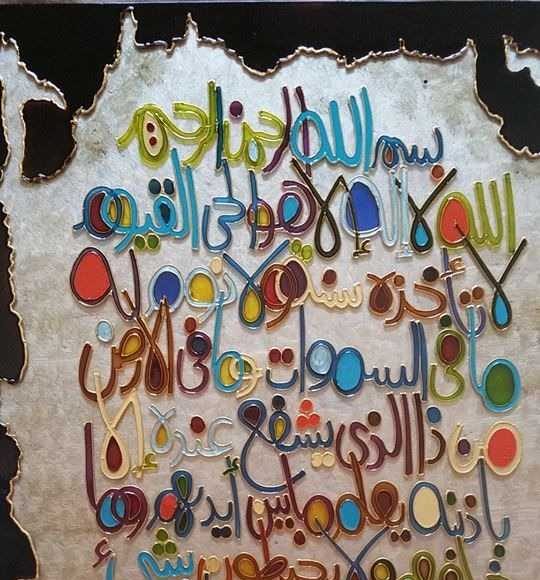 بسم الله الرحمن الرحيم
الله لا إله إلا هو الحى القيوم
لا تأخذه سنة ولا نوم له
ما فى السموات وما فى الارض
من ذا الذى يشفع عنده إلا
باذنه يعلم ما بين أيديهم وما
ولا يحيطون بشئ